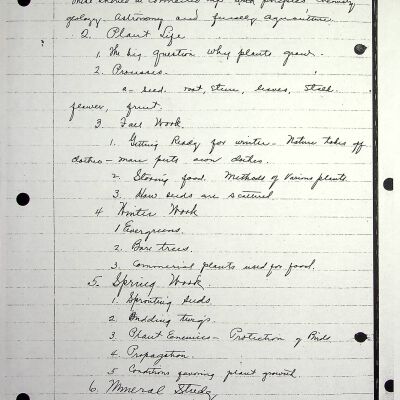 that should be connected up with peoples
geology. Astronomy and finally agriculture.
2. Plant Life
1. The big question why plants grow.
2. Processes.
a - seed. root, stem, leaves, stick
flower, fruit.
3. Fall Work.
1. Getting Ready for winter - Nature takes off
clothes - man puts on clothes.
2. Storing food. Methods of various plants.
3. How seeds are scattered
4 Winter Work
1 Evergreens.
2. Bare trees.
3. Commercial plants used for food.
5. Spring Work.
1. Sprouting seeds.
2. Budding twigs.
3 Plant Enemies - Protection of Birds.
4. Propagation.
5 Conditions favoring plant growth.
6. Mineral Study